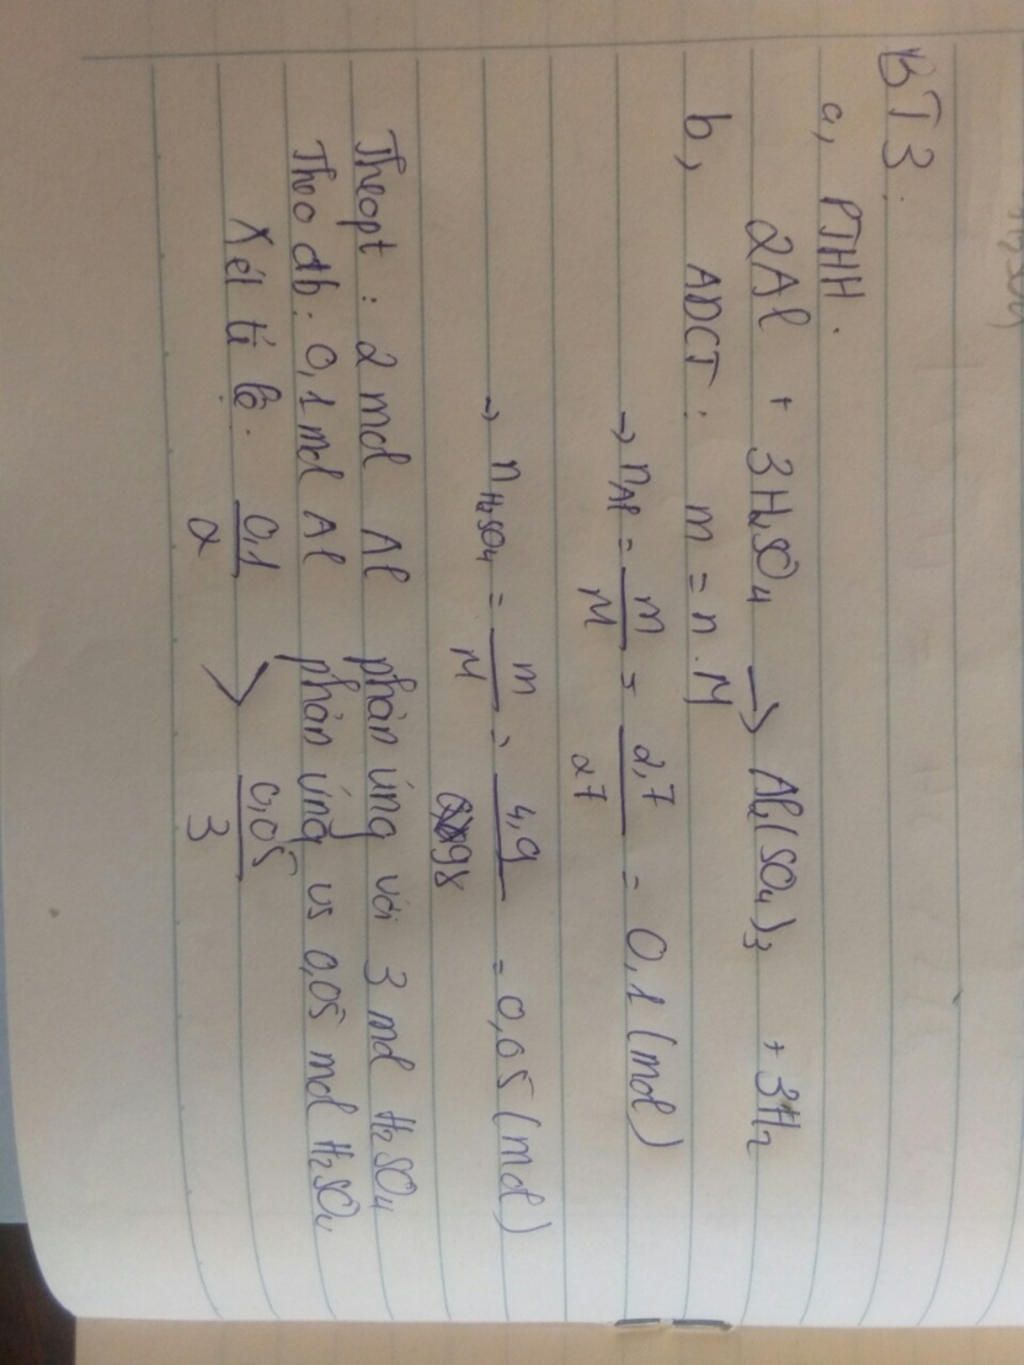 BT3:
a, PTHH:
2Al + 3H₂SO₄ → Al₂(SO₄)₃ + 3H₂
b, ADCT: m = n.M
→ nAl = m/M = 2,7/27 = 0,1 (mol)
→ nH₂SO₄ = m/M = 4,9/98 = 0,05 (mol)
Theo pt: 2 mol Al phản ứng với 3 mol H₂SO₄
Theo đb: 0,1 mol Al phản ứng vs 0,05 mol H₂SO₄
Xét tỉ lệ: 0,1/2 > 0,05/3